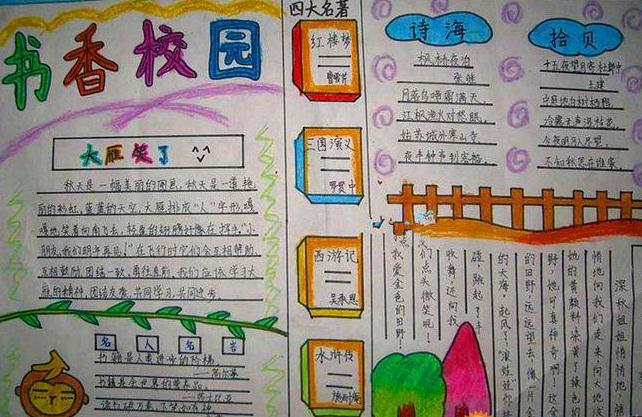 书香校园
大雁笑了
秋天是一幅美丽的图画,秋天是一道艳
丽的彩虹,蓝蓝的天空,大雁排成“人”字形,嘎
嘎地笑着向南飞去,
朋友,我们明年再见!”在飞行时它们会互相帮助,
互相鼓励,团结一致,勇往直前,我们应该学习大
雁的精神,团结友爱,共同学习,共同进步。
名人名言
书籍是人类进步的阶梯
——高尔基
书籍是全世界的营养品。
四大名著
红楼梦
曹雪芹
三国演义
罗贯中
西游记
吴承恩
水浒传
施耐庵
诗海
枫桥夜泊
张继
月落乌啼霜满天,
江枫渔火对愁眠。
姑苏城外寒山寺
夜半钟声到客船
拾贝
十五夜望月寄杜郎中
王建
中庭地白树栖鸦,
冷露无声湿桂花。
今夜月明人尽望,
不知秋思在谁家。
深秋姐姐悄悄地
情地向我们走来向大地
她的黄颜料染黄了绿色
野,她可真神奇啊!这
的田野,远远望去像一片金
的大海,起风了,“浪娃娃”你
碰
收舞,还向我
们点头微笑呢!
我爱金色的田野!